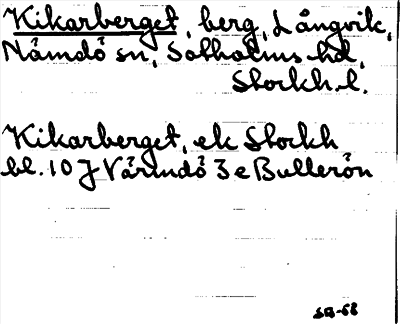 Kikarberget, berg, Långvik,
Nämdö sn, Sotholms hd,
Stockh. l.
Kikarberget, ek Stockh
bl. 10 J Värmdö 3 e Bullerön
SB-68